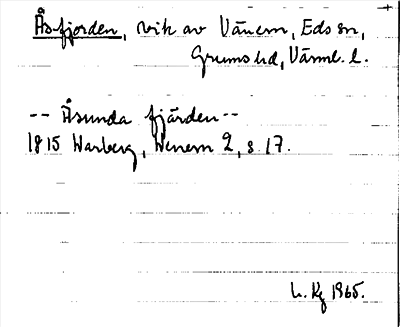 Åsfjorden, vik av Vänern, Eds sn,
Grums hd, Värml. l.
-- Åsunda fjärden --
1815 Warberg, Wenern 2, s. 17.
L. Kg 1965.